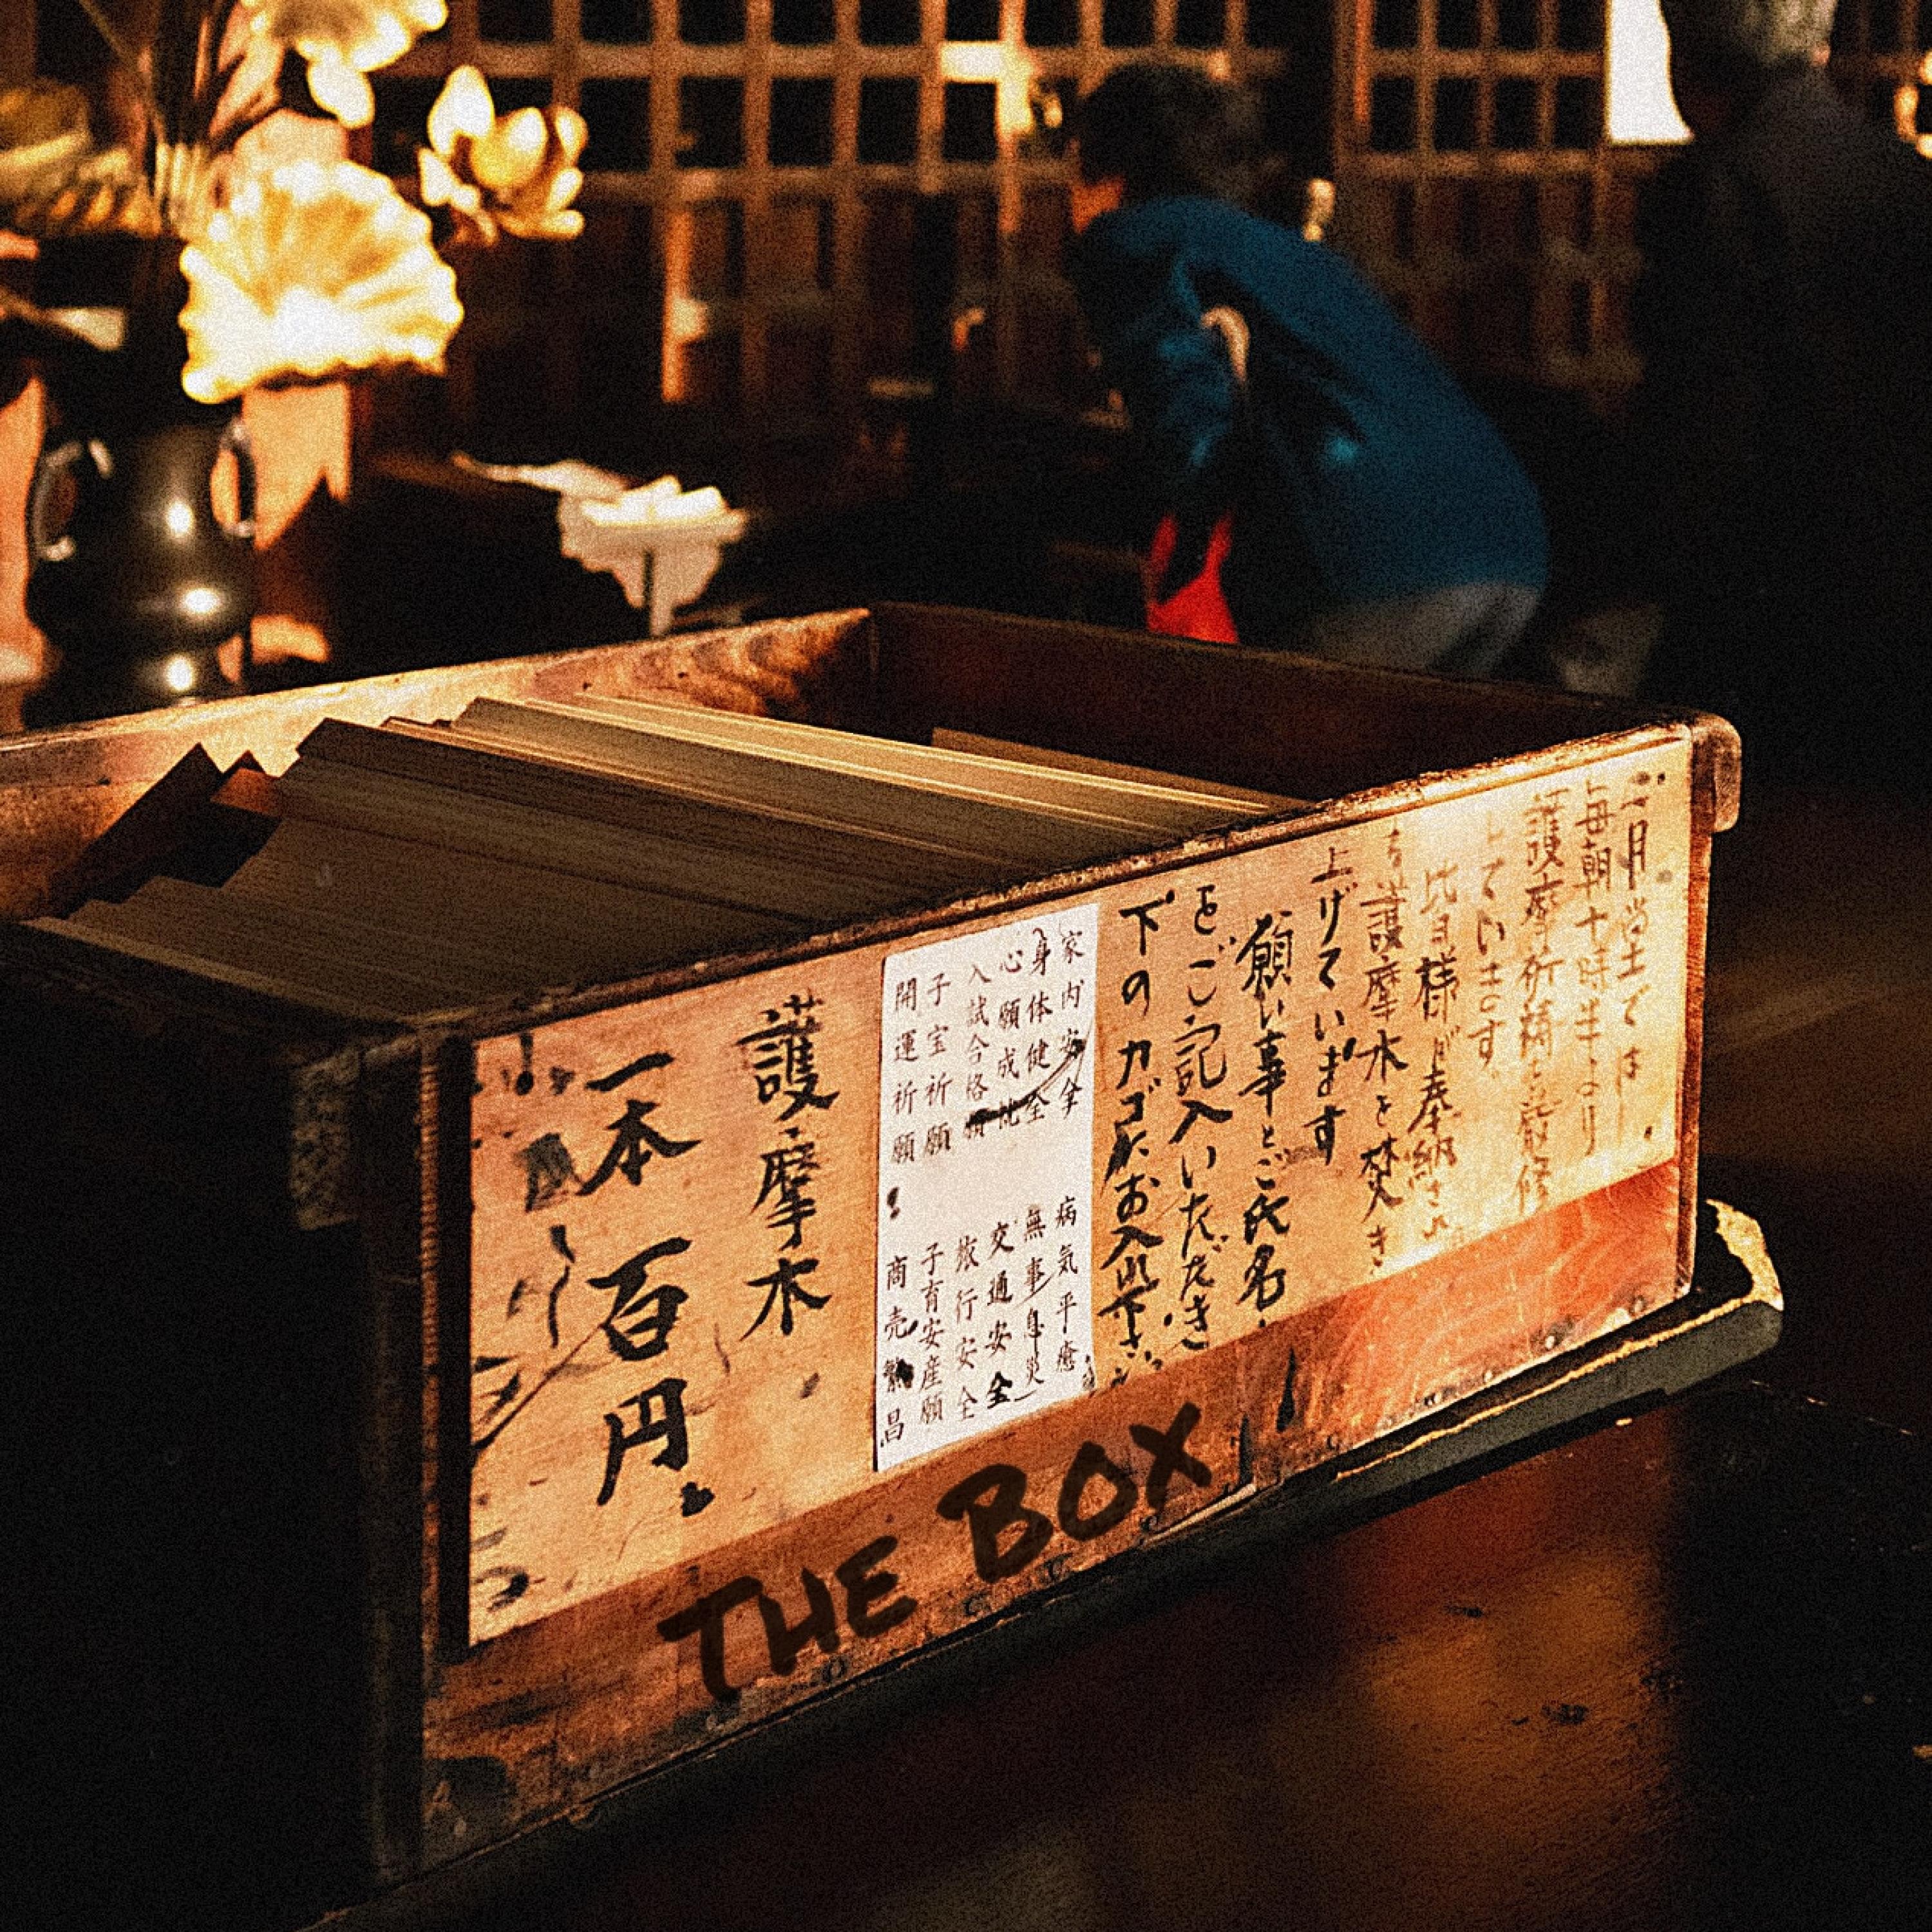 毎朝十時半より
護摩祈祷を厳修
しています。
皆様が奉納され
た護摩木を焚き
上げています
願い事とご氏名
をご記入いただき
下のカゴにお入れ下さい
家内安全
身体健全
心願成就
入試合格願
子宝祈願
開運祈願
病気平癒
無事息災
交通安全
旅行安全
子育安産願
商売繁昌
護摩木
一本 百円
THE BOX